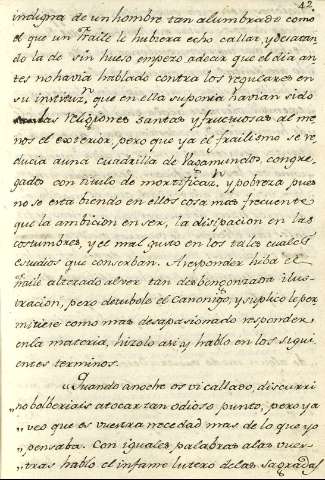 42
indigna de un hombre tan alumbrado como
el que un fraile le hubiera echo callar, y desatan
do la de sin hueso empezo adecir que el dia an
tes no havia hablado contra los regulares en
su instituzn que en ella suponia havian sido
Religiones santas y fructuosas al me
nos el exterior, pero que ya el frailismo se re
ducia auna cuadrilla de Vagamundos, congre
gados con titulo de mortificazn y pobreza, pues
no se esta biendo en ellos cosa mas frecuente
que la ambicion en ser, la disipacion en las
costumbres, y el mal gusto en los tales cuales
estudios que conserban. A responder hiba el
fraile alterado al ver tan desbergonzada ilus-
tracion, pero detubole el Canonigo, y suplicole per
mitiere como mas desapasionado responder
en la materia, hizolo asi y hablo en los sigui-
entes terminos.
"Quando anoche os vi callado, discurri
"no bolberiais atocar tan odioso punto, pero ya
"veo que es vuestra necedad mas de lo que yo
"pensaba. Con iguales palabras alas vues-
"tras hablo el infame lutero delas sagradas